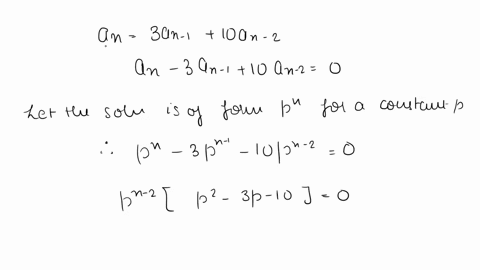 an = 3an-1 + 10an-2
an - 3an-1 + 10an-2 = 0
Let the soln is of form pⁿ for a constant p
∴ pⁿ - 3pⁿ⁻¹ - 10pⁿ⁻² = 0
pⁿ⁻² [ p² - 3p - 10 ] = 0